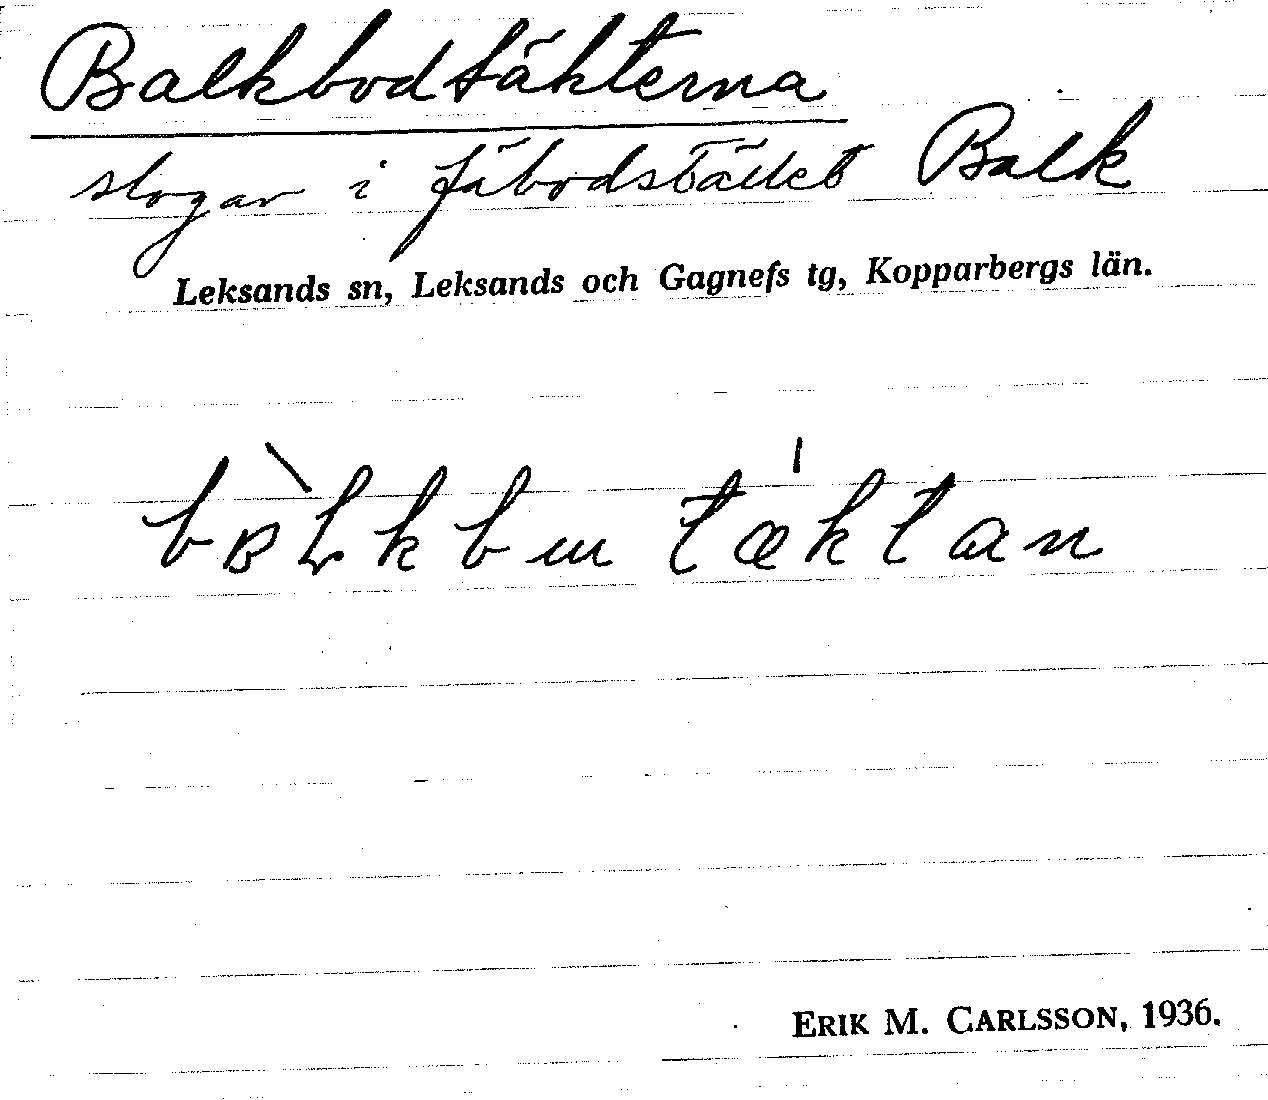 Balkbodtäkterna
slogar i fäbodstället Balk
Leksands sn, Leksands och Gagnefs tg, Kopparbergs län.
täktan
ERIK M. CARLSSON, 1936.